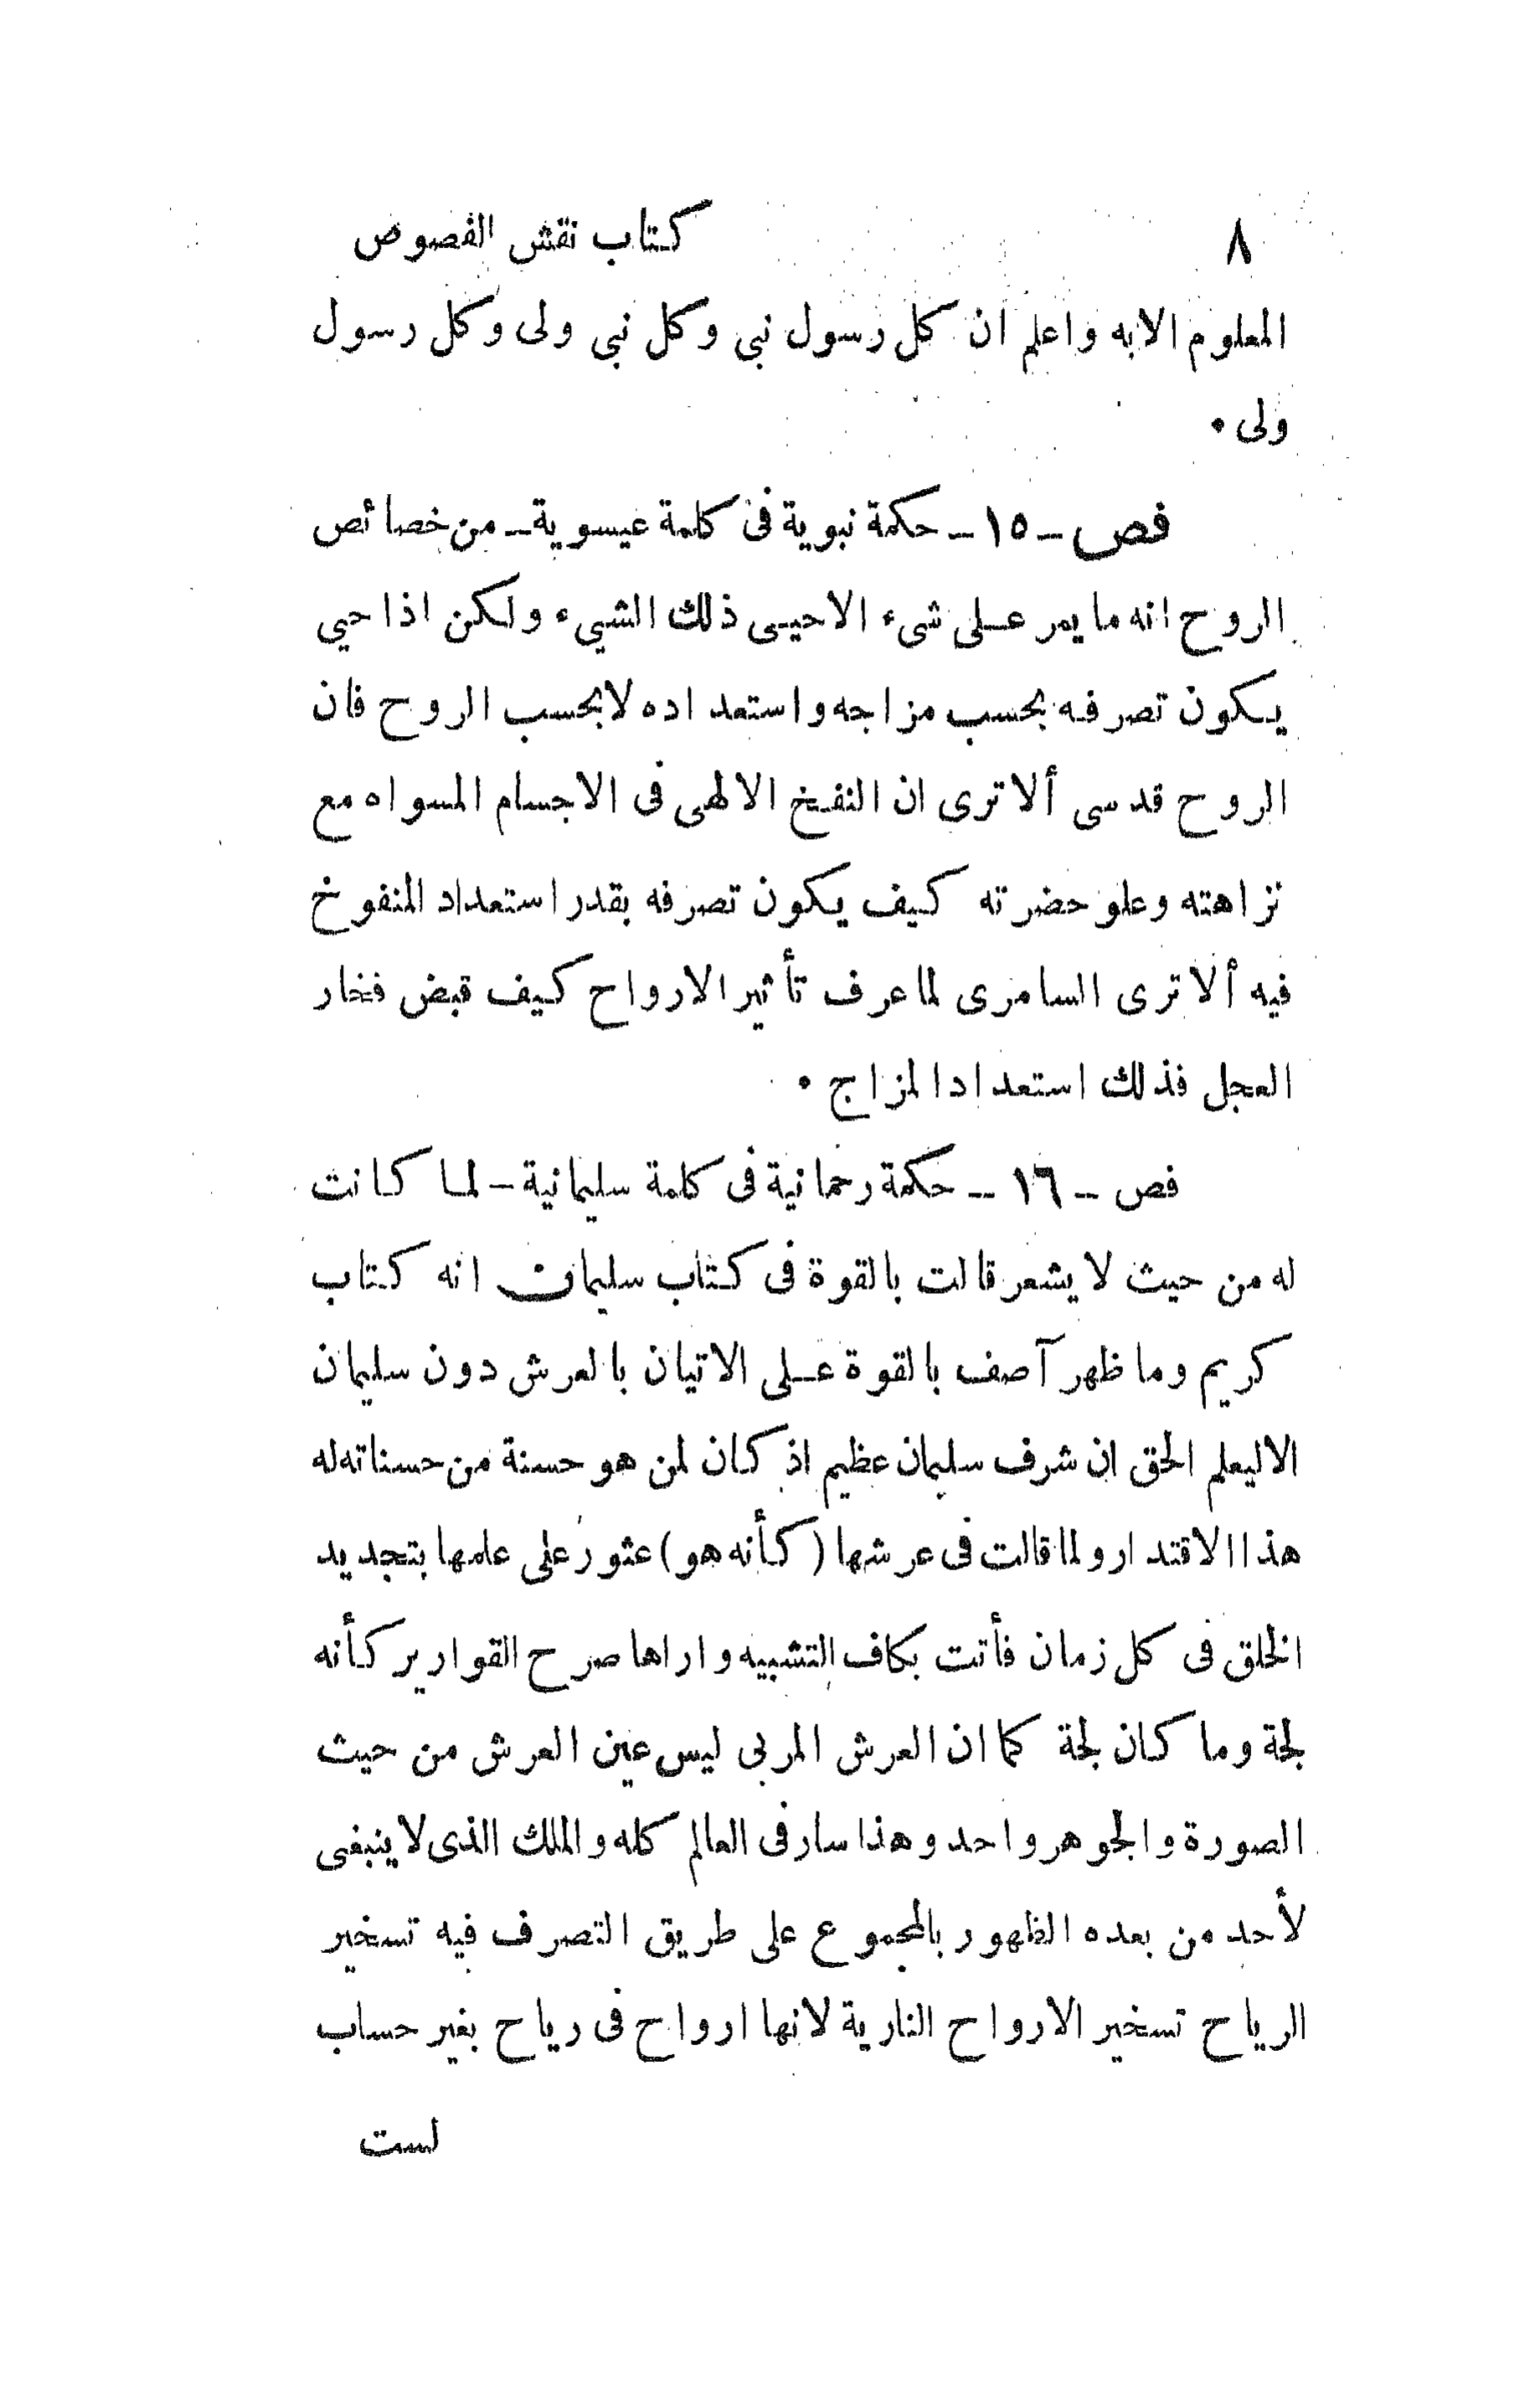 ٨ كتاب نقش الفصوص
المعلوم الابه واعلم ان كل رسول نبي وكل نبي ولى وكل رسول
ولى ٠
فص ــ ١٥ ــ حكمة نبوية فى كلمة عيسوية ــ من خصائص
الروح انه ما يمر على شىء الاحيى ذلك الشيء ولكن اذا حيي
يكون تصرفه بحسب مزاجه واستعداده لا بحسب الروح فان
الروح قدسى ألا ترى ان النفخ الالهى فى الاجسام المسواه مع
نزاهته وعلو حضرته كيف يكون تصرفه بقدر استعداد المنفوخ
فيه ألا ترى السامرى لما عرف تأثير الارواح كيف قبض فخار
العجل فذلك استعداد المزاج ٠
فص ــ ١٦ ــ حكمة رحمانية فى كلمة سليمانية ــ لما كانت
له من حيث لا يشعر قالت بالقوة فى كتاب سليمان انه كتاب
كريم وما ظهر آصف بالقوة على الاتيان بالعرش دون سليمان
الا ليعلم الحق ان شرف سليمان عظيم اذ كان لمن هو حسنة من حسناته له
هذا الاقتدار ولما قالت فى عرشها (كأنه هو) عثور على علمها بتجديد
الخلق فى كل زمان فأتت بكاف التشبيه واراها صرح القوارير كأنه
لجة وما كان لجة كما ان العرش المربى ليس عين العرش من حيث
الصورة والجوهر واحد وهذا سار فى العالم كله والملك الذى لا ينبغى
لأحد من بعده الظهور بالمجموع على طريق التصرف فيه تسخير
الرياح تسخير الارواح النارية لانها ارواح فى رياح بغير حساب
لست